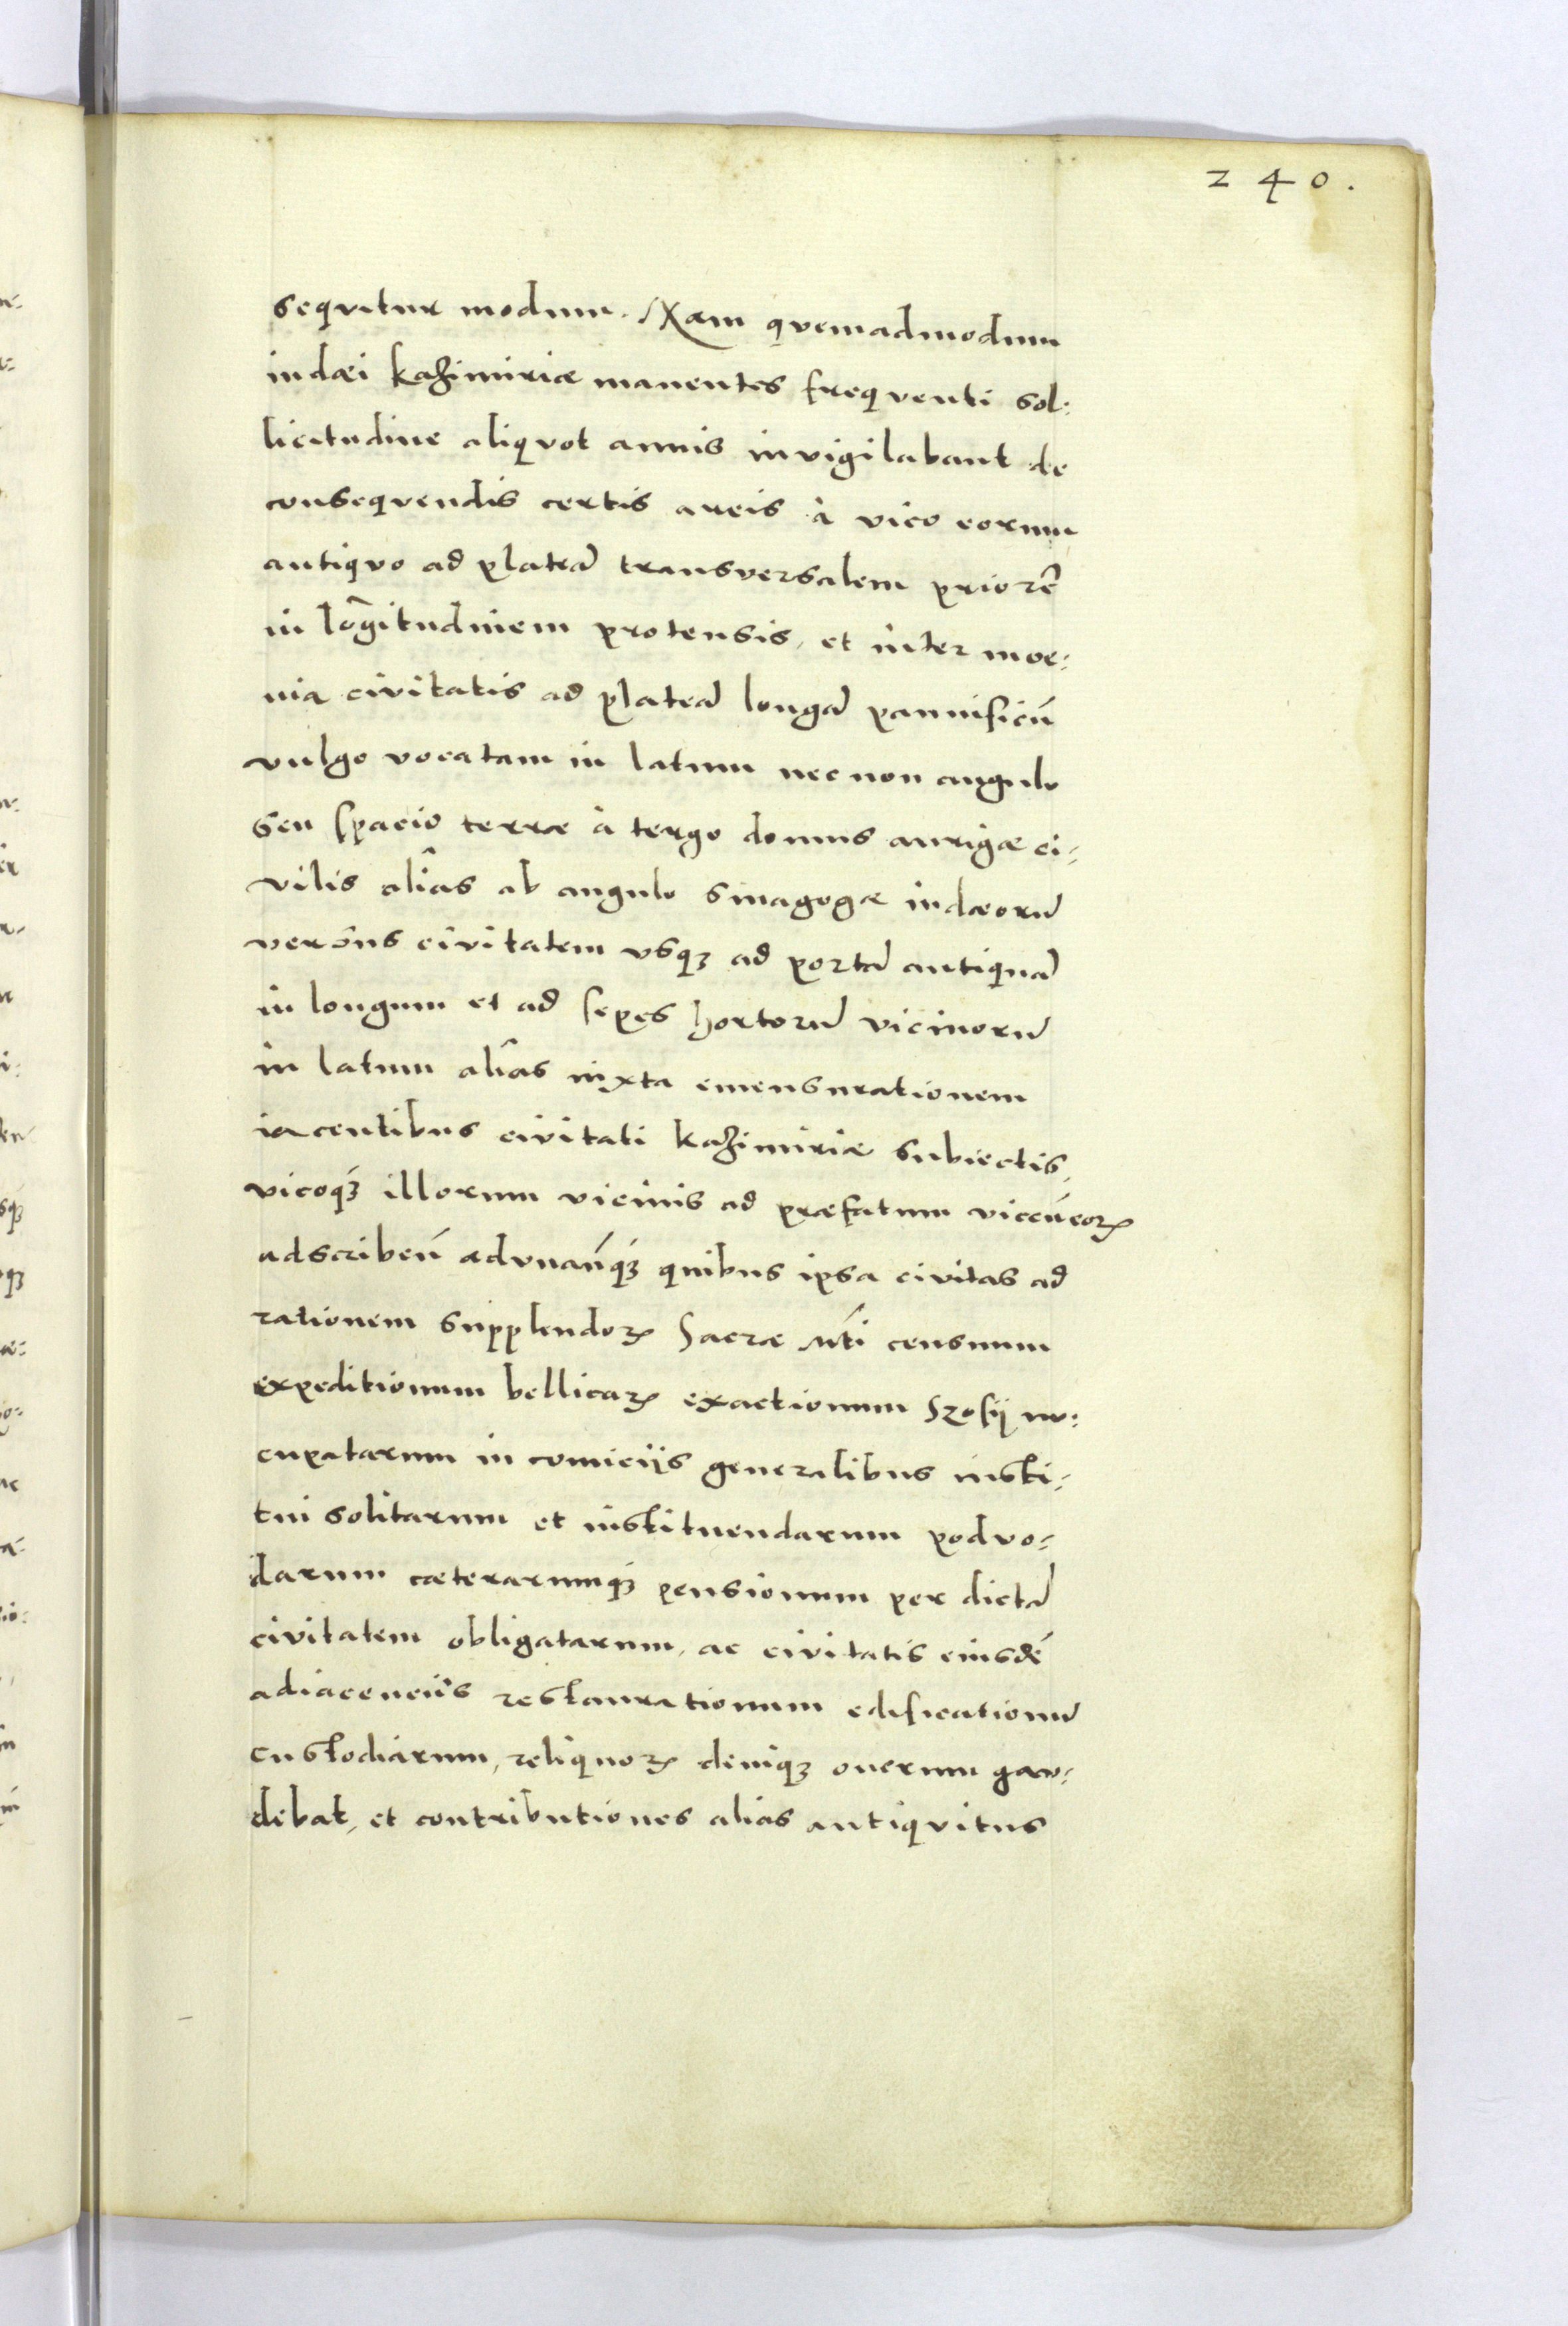 240.
sequitur modum. Nam quemadmodum
iudæi Kazimiriæ manentes frequenti sol:
licitudine aliquot annis invigilabant de
consequendis certis areis à vico eorum
antiquo ad plateã transversalem priorẽ
in lõgitudinem protensis, et inter moe:
nia civitatis ad plateã longã pannificũ
vulgo vocatam in latum nec non angulo
seu spacio terræ à tergo domus aurigæ ci:
vilis alias ab angulo sinagogæ iudæorũ
versus civitatem usq3 ad portã antiquã
in longum et ad sepes hortorũ vicinorũ
in latum alias iuxta emensurationem
iacentibus civitati Kazimiriæ subiectis,
vicoq3 illorum vicinis ad præfatum vicũ eoꝝ
adscribeñ adunañq3 quibus ipsa civitas ad
rationem supplendoꝝ Sacræ Mti censuum
expeditionum bellicaꝝ exactionum Szosij nu:
cupatarum in comicijs generalibus insti:
tui solitarum et instituendarum podvo:
darum cæterarumq3 pensionum per dictã
civitatem obligatarum, ac civitatis eiusdẽ
adiacencijs restaurationum edificationũ
custodiarum, reliquoꝝ deniq3 onerum gau:
debat, et contributiones alias antiquitus